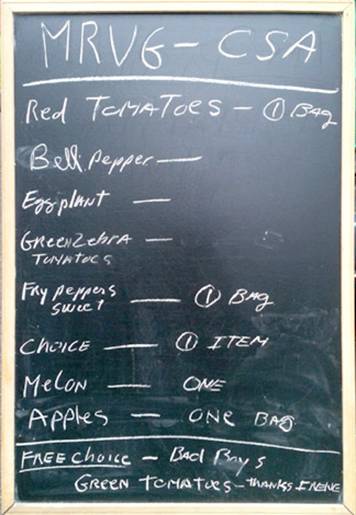 MRVG - CSA
Red TOMATOES - ① BAG
Bell Pepper —
Eggplant —
GREEN Zebra —
TOMATOES
Fry peppers — ① BAG
sweet
CHOICE — ① ITEM
MELON — ONE
Apples — ONE BAG
FREE CHOICE - BAD Boys
GREEN TOMATOES - THANKS IRENE